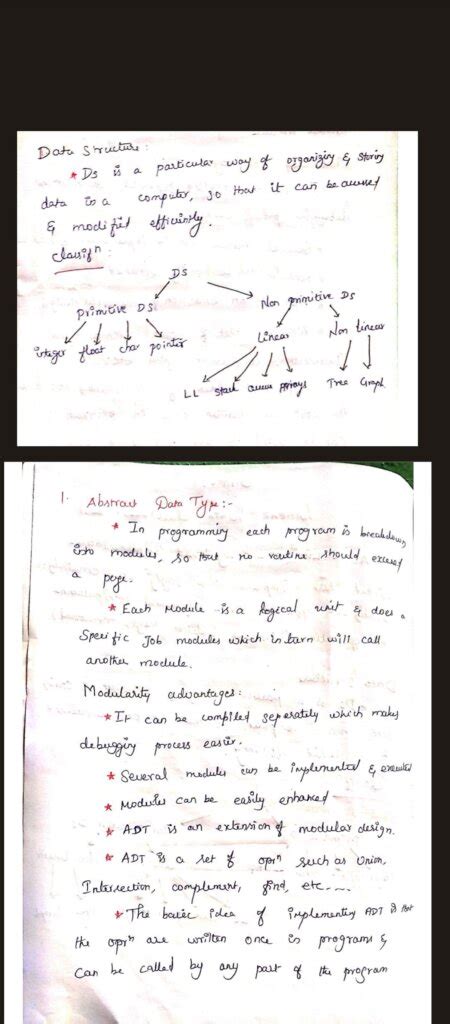 Data Structure:
* DS is a particular way of organizing & storing
data in a computer, so that it can be accused
& modified efficiently.
classifn
DS
primitive DS Non primitive DS
integer float char pointer Linear Non linear
LL stack queue arrays Tree Graph
1. Abstract Data Type:-
* In programming each program is breakdown
into modules, so that no routine should exceed
a page.
* Each Module is a logical unit & does a
Specific Job modules which in turn will call
another module.
Modularity advantages:
* It can be compiled seperately which makes
debugging process easier.
* Several modules can be implemented & executed
* Modules can be easily enhanced
* ADT is an extension of modular design.
* ADT is a set of oprn such as Union,
Intersection, complement, find, etc....
* The basic idea of implementing ADT is that
the oprn are written once in programs &
can be called by any part of the program